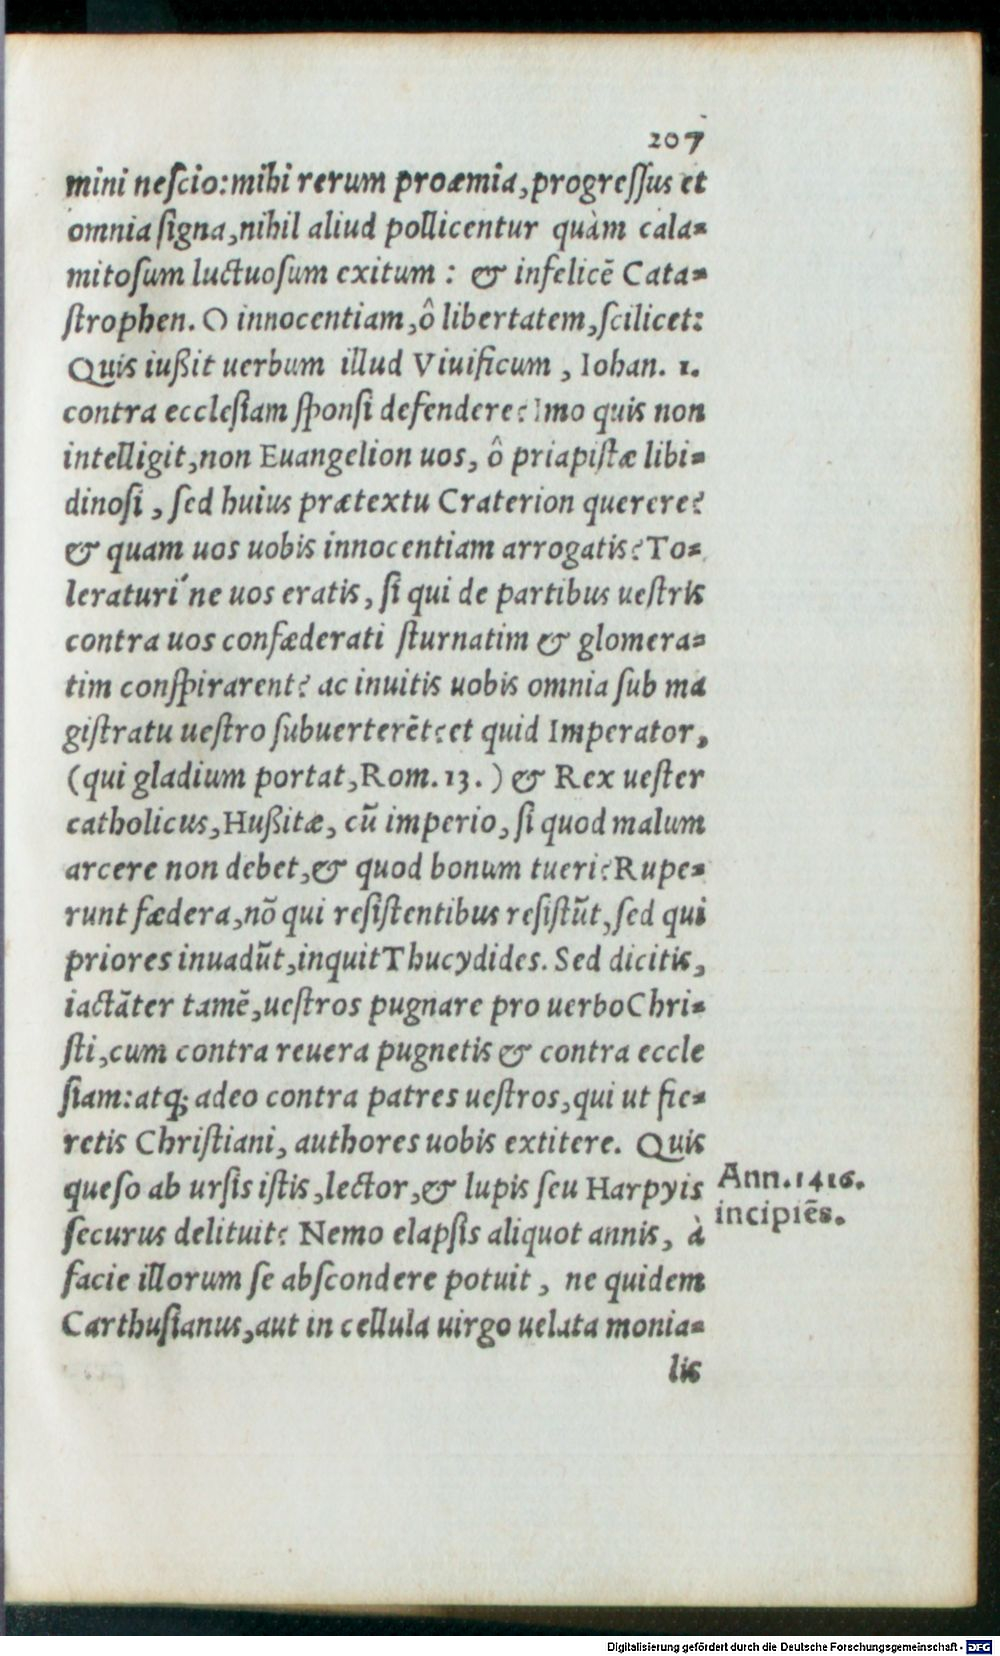 207
mini neſcio:mihi rerum proæmia,progreſſus et
omnia ſigna,nihil aliud pollicentur quàm cala⸗
mitoſum luctuoſum exitum : & infelicē Cata⸗
ſtrophen. O innocentiam,ô libertatem,ſcilicet:
Quis iußit uerbum illud Viuificum , Iohan. 1.
contra eccleſiam ſponſi defendere? Imo quis non
intelligit,non Euangelion uos, ô priapiſtæ libi⸗
dinoſi , ſed huius prætextu Craterion querere?
& quam uos uobis innocentiam arrogatis? To⸗
leraturi´ne uos eratis, ſi qui de partibus ueſtris
contra uos confæderati ſturnatim & glomera⸗
tim conſpirarent? ac inuitis uobis omnia ſub ma
giſtratu ueſtro ſubuerterēt? et quid Imperator,
(qui gladium portat,Rom. 13. ) & Rex ueſter
catholicus,Hußitæ, cū imperio, ſi quod malum
arcere non debet,& quod bonum tueri? Rupe⸗
runt fædera,nō qui reſiſtentibus reſiſtūt,ſed qui
priores inuadūt,inquit Thucydides. Sed dicitis,
iactāter tamē,ueſtros pugnare pro uerbo Chri⸗
ſti,cum contra reuera pugnetis & contra eccle
ſiam:atq; adeo contra patres ueſtros,qui ut fie⸗
retis Chriſtiani, authores uobis extitere. Quis
queſo ab urſis iſtis,lector,& lupis ſeu Harpyis
ſecurus delituit? Nemo elapſis aliquot annis, à
facie illorum ſe abſcondere potuit , ne quidem
Carthuſianus,aut in cellula uirgo uelata monia⸗
lis
Ann. 1416.
incipiēs.
Digitalisierung gefördert durch die Deutsche Forschungsgemeinschaft - DFG